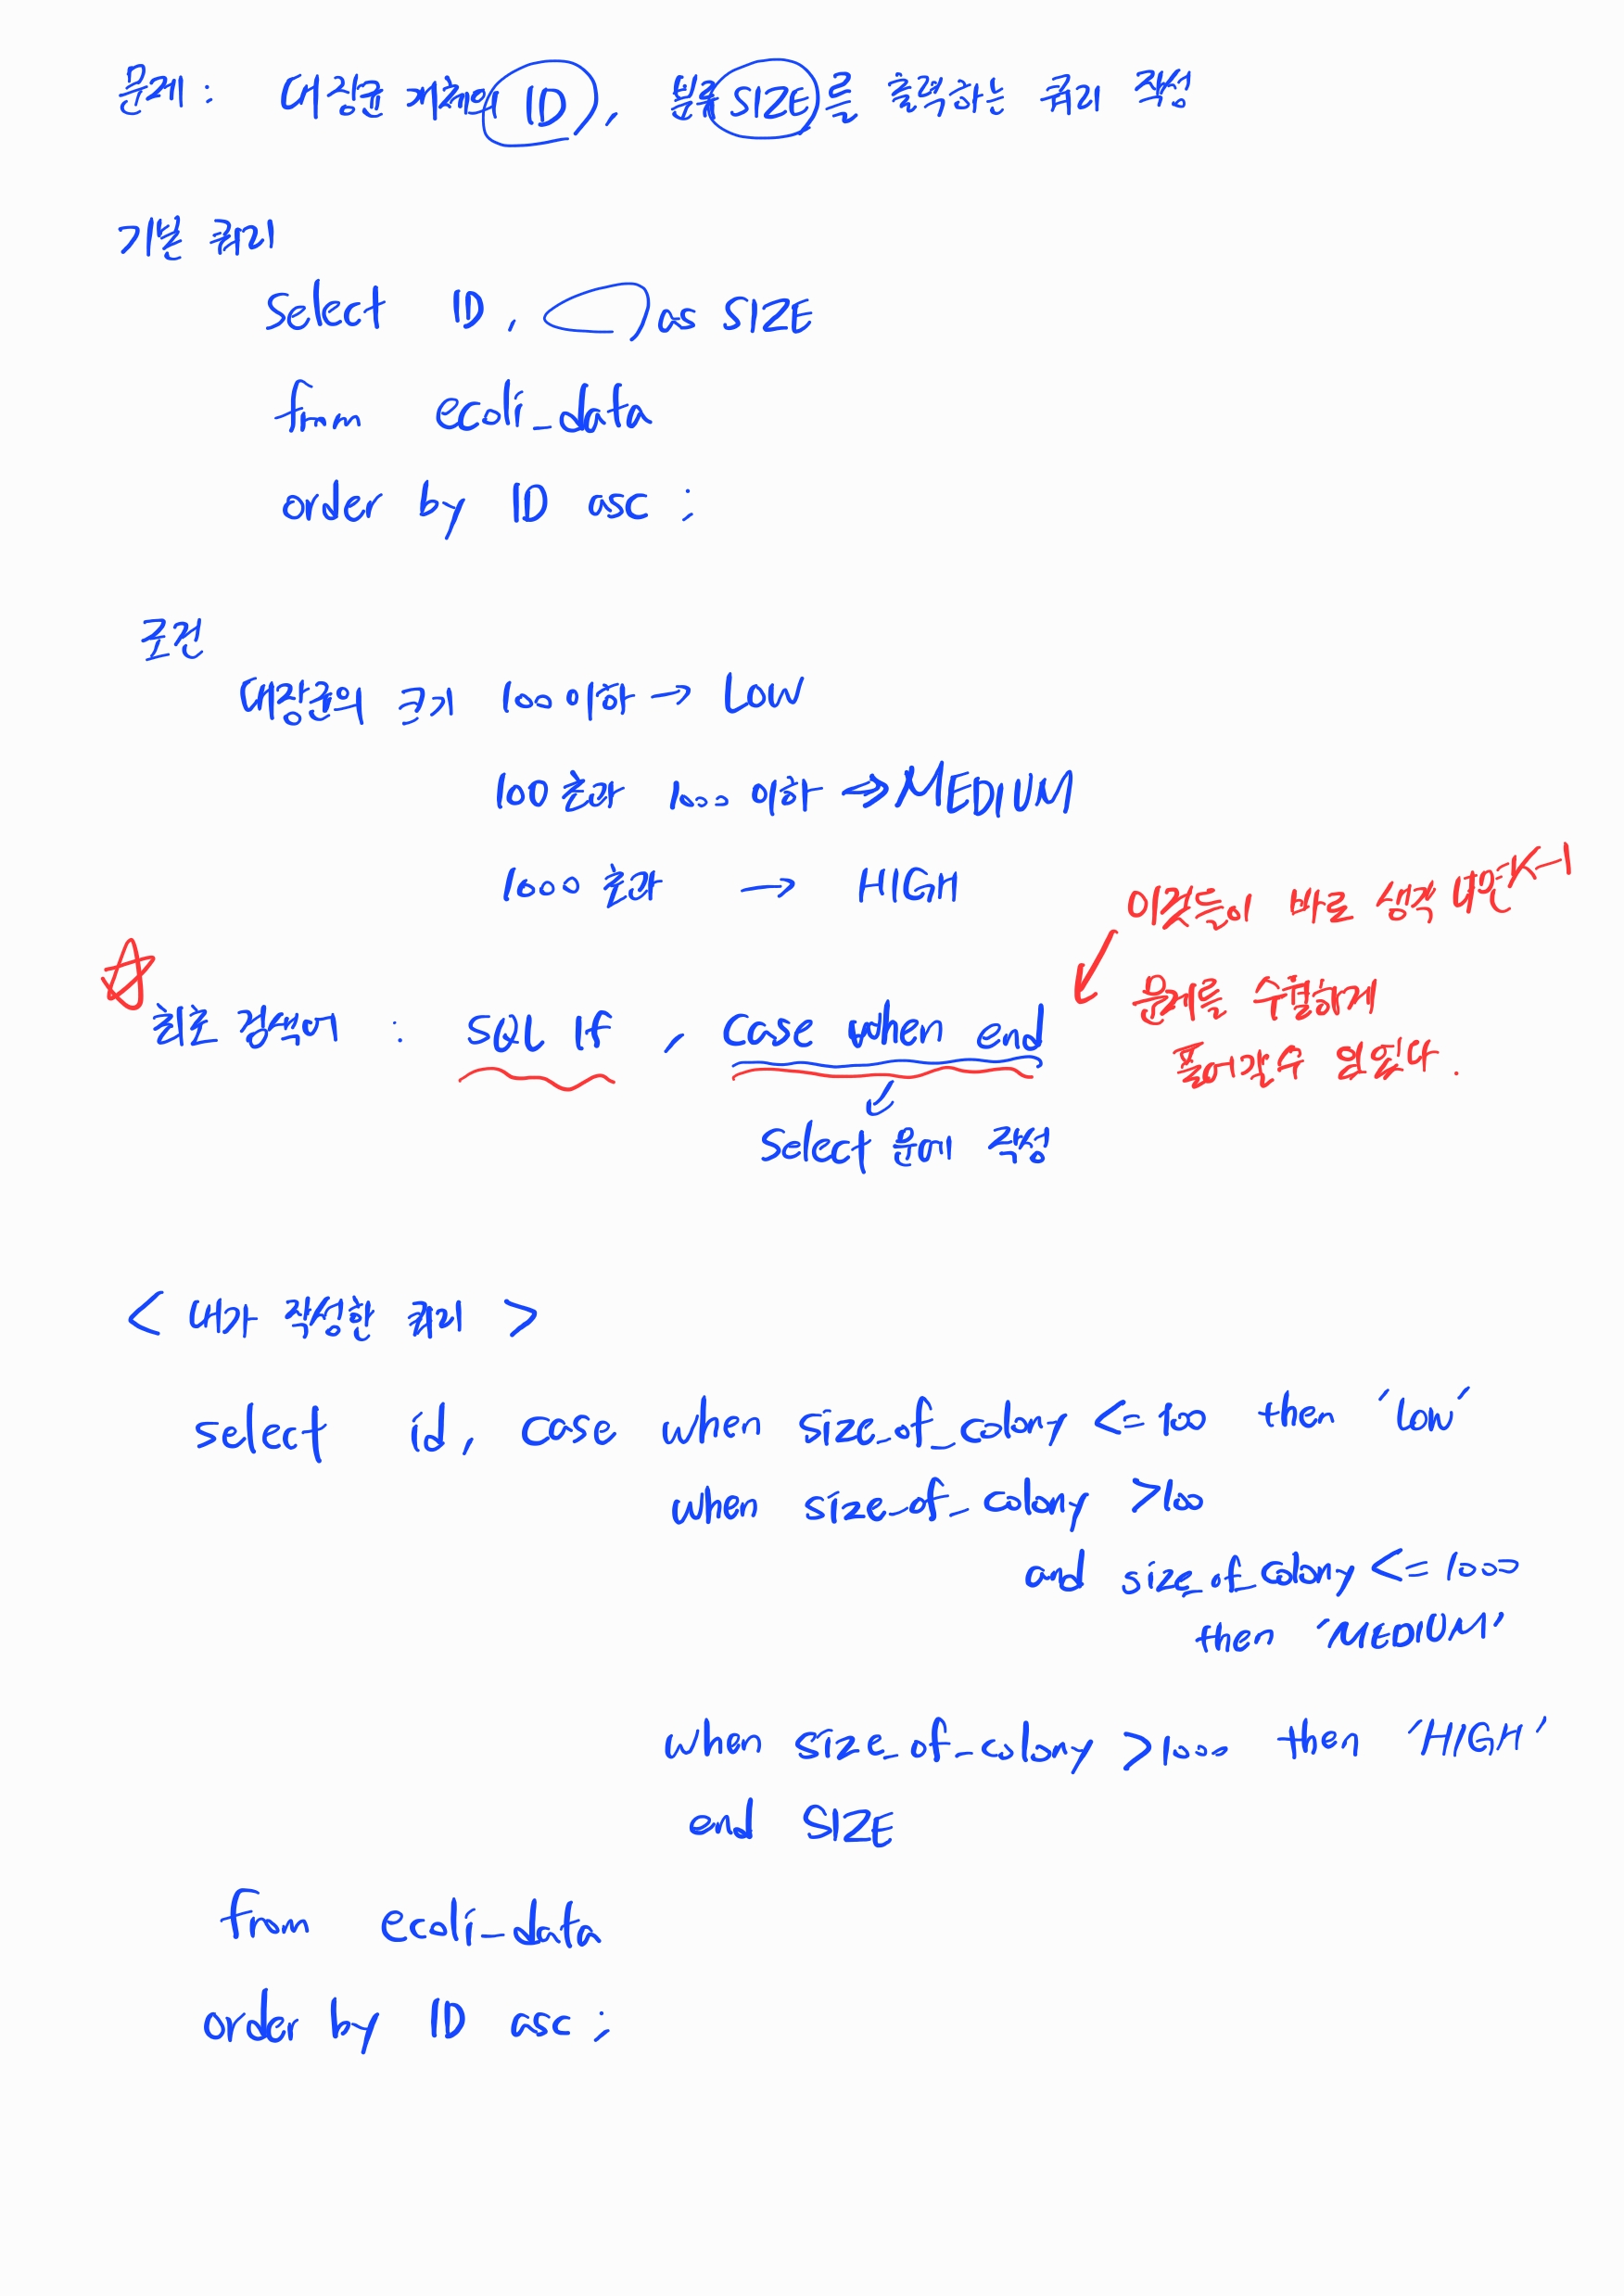 문제 : 대장균 개체의 ID, 분류 SIZE를 출력하는 쿼리 작성
기본 쿼리
Select ID, as SIZE
from ecoli_data
order by ID asc ;
조건
대장균의 크기 100 이하 → LOW
100 초과 1000 이하 → MEDIUM
1000 초과 → HIGH
이것들이 바로 생각
문제를 수월하게
풀어갈수 있었다.
최초 검색어 : SQL If , case when end
Select 문에 작성
< 내가 작성한 쿼리 >
select id, case when size_of_colony <= 100 then 'LOW'
when size_of_colony >100
and size_of_colony <= 1000
then 'MEDIUM'
when size_of_colony >1000 then 'HIGH'
end SIZE
from ecoli_data
order by ID asc ;